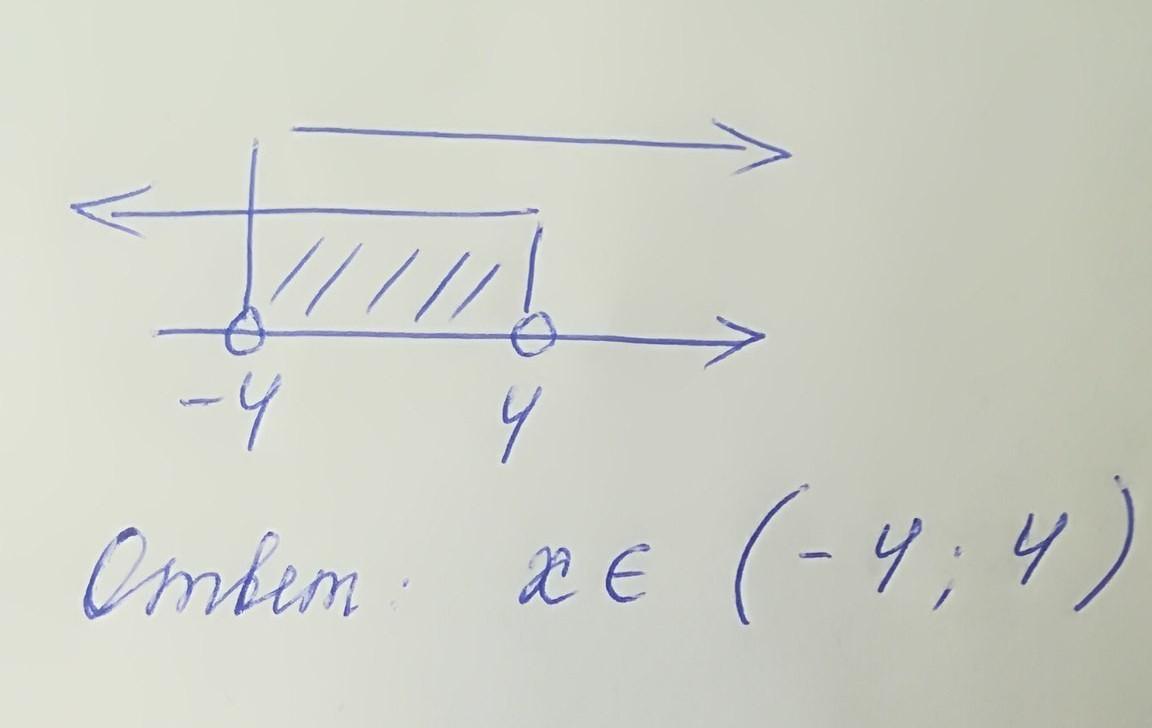 -4 4
Ответ: x ∈ (-4; 4)